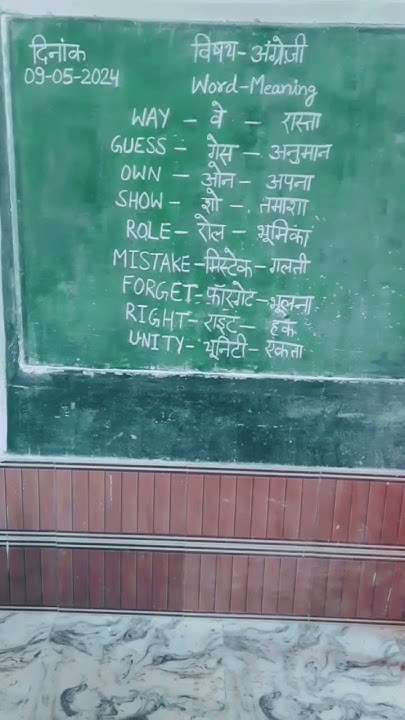 दिनांक विषय-अंग्रेज़ी
09-05-2024 Word-Meaning
WAY - वे - रास्ता
GUESS - गेस - अनुमान
OWN - ओन - अपना
SHOW - शो - तमाशा
ROLE - रोल - भूमिका
MISTAKE - मिस्टेक - गलती
FORGET - फ़ॉरगेट - भूलना
RIGHT - राइट - हक
UNITY - यूनिटी - एकता